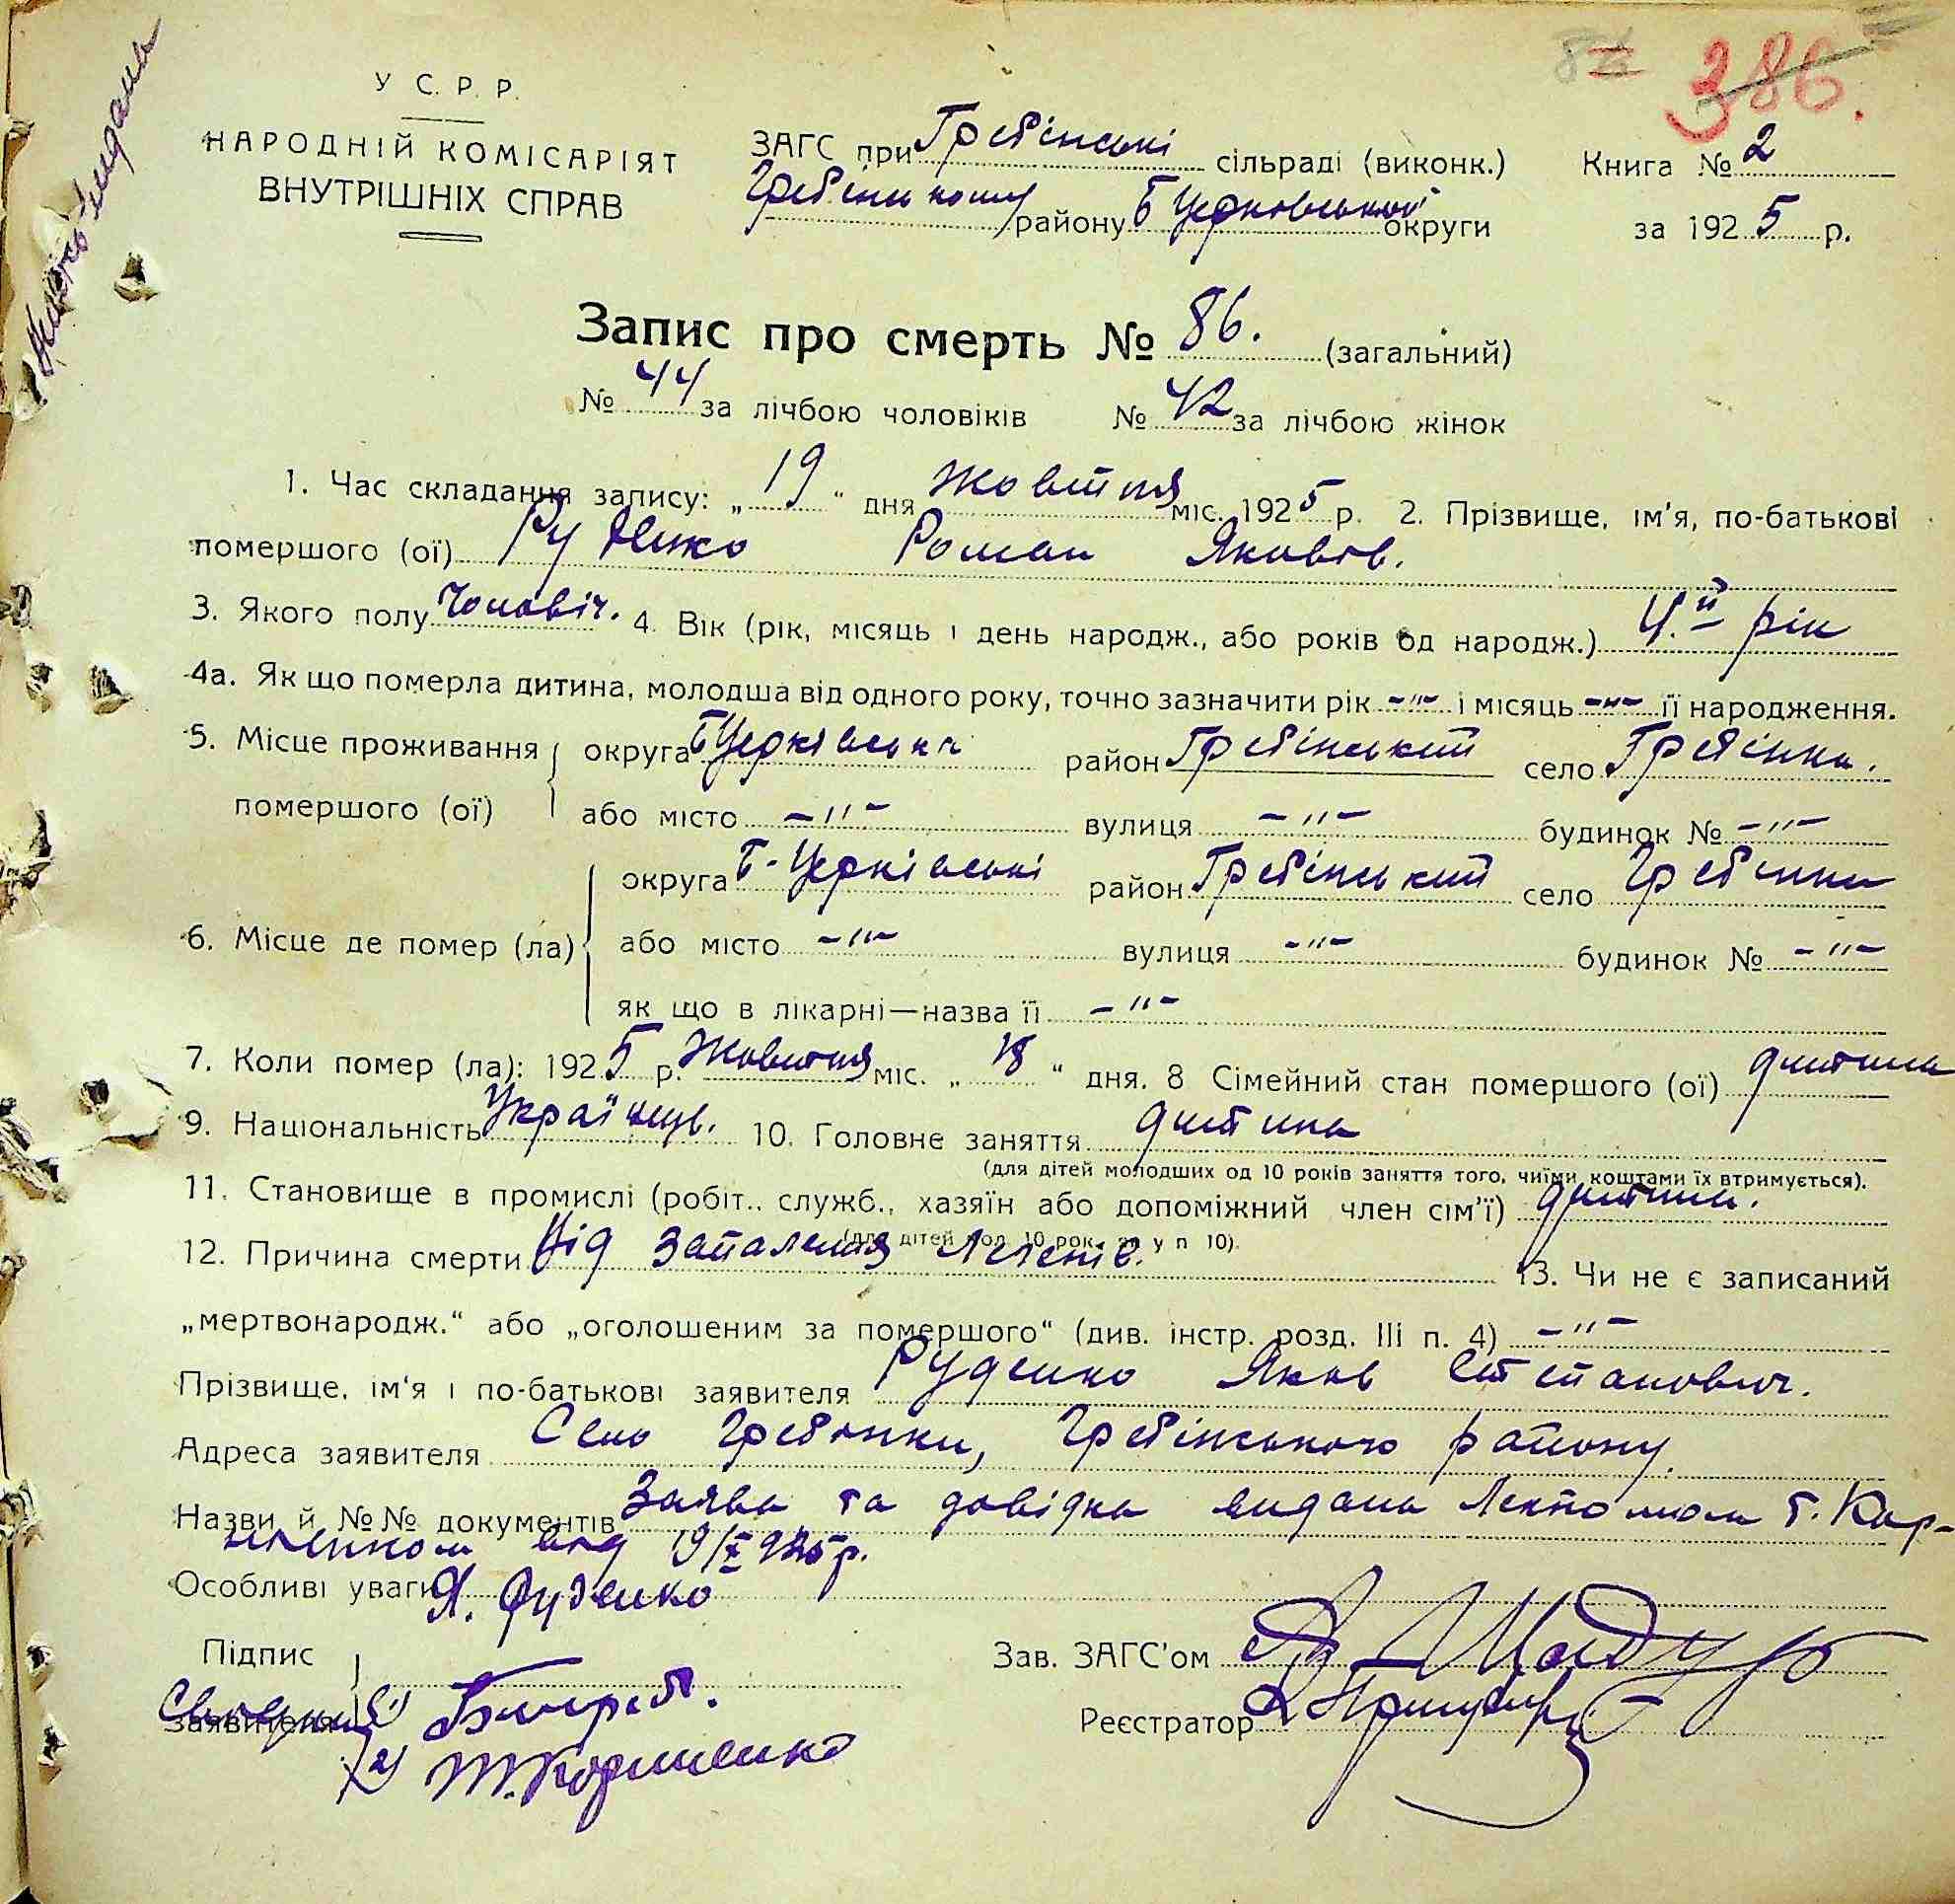 386.
У С. Р. Р.
НАРОДНІЙ КОМІСАРІЯТ
ВНУТРІШНІХ СПРАВ
ЗАГС при Гребінські сільраді (виконк.) Книга № 2
району Б Церковської округи за 1925 р.
Запис про смерть № 86. (загальний)
№ 44 за лічбою чоловіків № 42 за лічбою жінок
1. Час складання запису: „ 19 “ дня жовтня міс. 1925 р. 2. Прізвище, ім'я, по-батькові
помершого (ої) Руденко Роман Яковів.
3. Якого полу чоловіч. 4. Вік (рік, місяць і день народж., або років од народж.) 4.й рік
4а. Як що померла дитина, молодша від одного року, точно зазначити рік -"- і місяць -"- її народження.
5. Місце проживання округа район Гребінський село Гребінки.
помершого (ої) або місто -"- вулиця -"- будинок № -"-
округа Б-Церківські район Гребінський село Гребінки
6. Місце де помер (ла) або місто -"- вулиця -"- будинок № -"-
як що в лікарні—назва її -"-
7. Коли помер (ла): 1925 р. жовтня міс. „ 18 “ дня. 8 Сімейний стан помершого (ої) дитина
9. Національність Українець. 10. Головне заняття дитина
(для дітей молодших од 10 років заняття того, чиїми коштами їх втримується).
11. Становище в промислі (робіт.. служб., хазяїн або допоміжний член сім'ї) дитина.
(для дітей мол. 10 рок. у п 10).
12. Причина смерти Від Запалення Легенів. 13. Чи не є записаний
„мертвонародж.“ або „оголошеним за помершого“ (див. інстр. розд. III п. 4) -"-
Прізвище, ім'я і по-батькові заявителя Руденко Яків Степанович.
Адреса заявителя Село Гребінки, Гребінського району.
Назви й №№ документів Заява та довідка видана Лекпомом т. Кор-
від 19/X 925 р.
Особливі уваги Я. Руденко
Підпис Зав. ЗАГС'ом
заявителя 1)
Реєстратор
2) Т. Корниенко